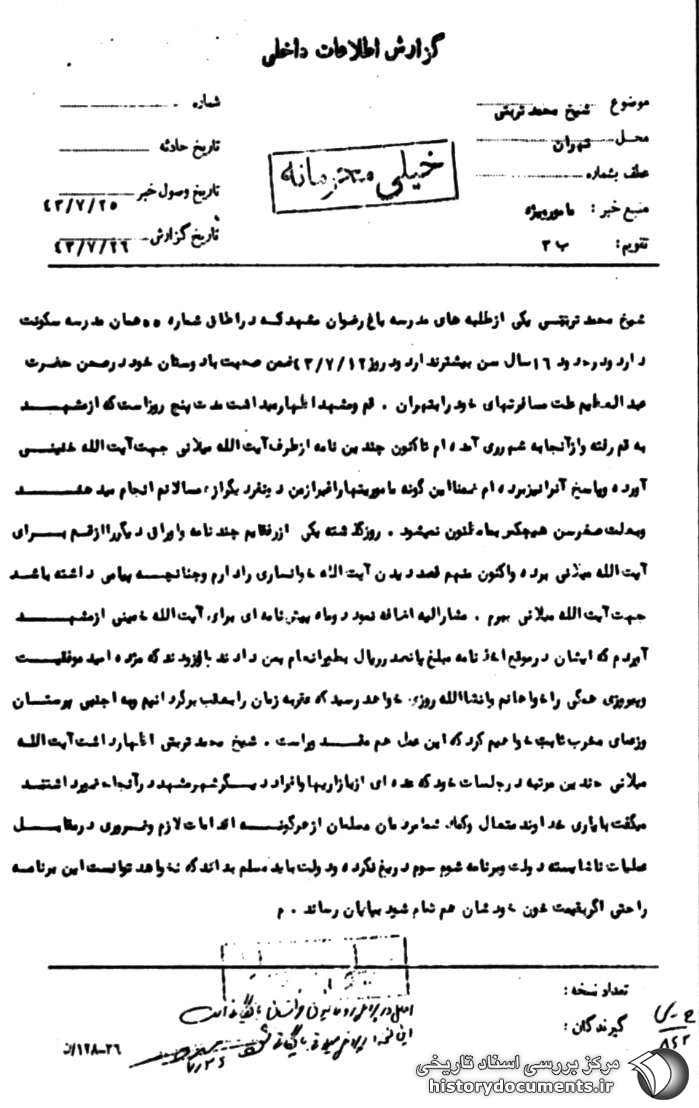 گزارش اطلاعات داخلی
موضوع شیخ محمد تربتی
شماره
محل تهران
تاریخ حادثه
خیلی محرمانه
عطف بشماره
تاریخ وصول خبر ۴۳/۷/۲۵
منبع خبر : مامور ویژه
تاریخ گزارش ۴۳/۷/۲۶
تقویم : ب ۲
شیخ محمد تربتی یکی از طلبه های مدرسه باغ رضوان مشهد که در اطاق شماره ۵۵ همان مدرسه سکونت
دارد و در حدود ۱۶ سال سن بیشتر ندارد و در روز ۴۳/۷/۱۲ ضمن صحبت با دوستان خود در صحن حضرت
عبدالعظیم علت مسافرتهای خود را بتهران . قم و مشهد اظهار میداشت مدت پنج روز است که از مشهد
به قم رفته و از آنجا به شهر ری آمده ام تاکنون چندین نامه از طرف آیت الله میلانی جهت آیت الله خمینی
آورده و پاسخ آنرا نیز برده ام ضمنا این گونه ماموریتها را غیر از من دو نفر دیگر از همسالانم انجام میدهند
و بعلت صغر سن هیچکس بما ظنون نمیشود . روز گذشته یکی از رفقایم چند نامه و اوراق دیگر را از قم برای
آیت الله میلانی برده و اکنون منهم قصد دیدن آیت الله خوانساری را دارم و چنانچه پیامی داشته باشد
جهت آیت الله میلانی ببرم . مشارالیه اضافه نمود دو ماه پیش نامه ای برای آیت الله خمینی از مشهد
آوردم که ایشان در موقع اخذ نامه مبلغ پانصد ریال بطور انعام بمن دادند و افزودند که مژده امید موفقیت
و پیروزی همگی را خواهانم و انشاالله روزی خواهد رسید که عقربه زمان را بعقب برگردانیم و به اجنبی پرستان
و زعمای مخرب ثابت خواهیم کرد که این عمل هم مقدور است . شیخ محمد تربتی اظهار داشت آیت الله
میلانی چندین مرتبه در جلسات خود که عده ای از بازاریها و افراد دیگر شهر مشهد در آنجا حضور داشتند
میگفت با یاری خداوند متعال و کمک شما مردمان مسلمان از هر گونه اقدامات لازم و ضروری در مقابل
عملیات ناشایسته دولت و برنامه شوم سوم دریغ نکرده و دولت باید مسلم بداند که نخواهد توانست این برنامه
را حتی اگر بقیمت خون خودشان هم تمام شود بپایان رساند . م
تعداد نسخه :
گیرندگان :
۱۲۸-۲۶/ن
۸۴۲
مرکز بررسی اسناد تاریخی
historydocuments.ir